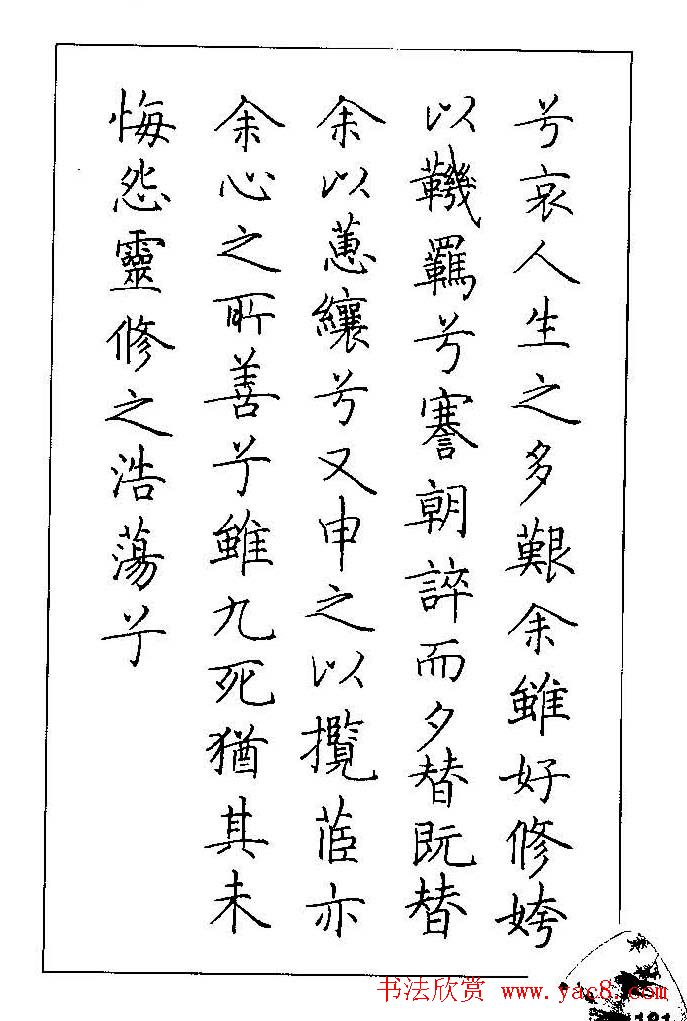 兮哀人生之多艱余雖好修姱
以鞿羈兮謇朝誶而夕替既替
余以蕙纕兮又申之以攬茝亦
余心之所善兮雖九死猶其未
悔怨靈修之浩蕩兮
书法欣赏 www.yac8.com